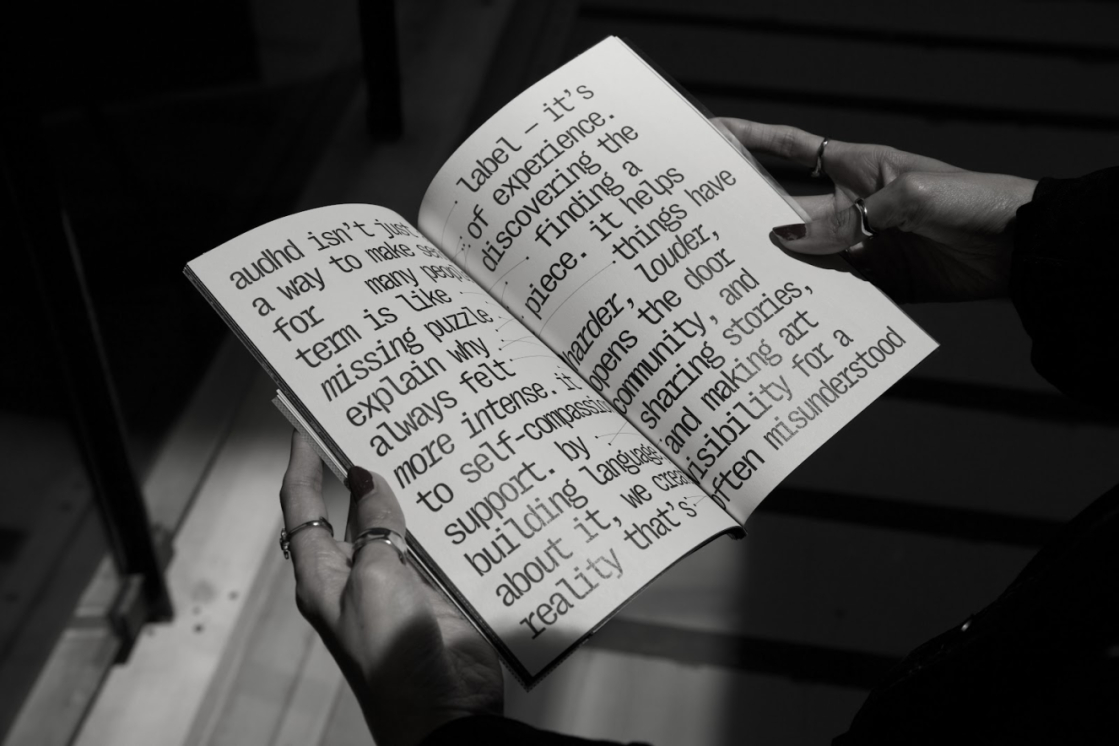 audhd isn't just label – it's
a way to make se of experience.
for many peop discovering the
term is like finding a
missing puzzle piece. it helps
explain why things have
always felt harder, louder,
more intense. it opens the door
to self-compassio community, and
support. by sharing stories,
building language and making art
about it, we crea visibility for a
reality that's often misunderstood